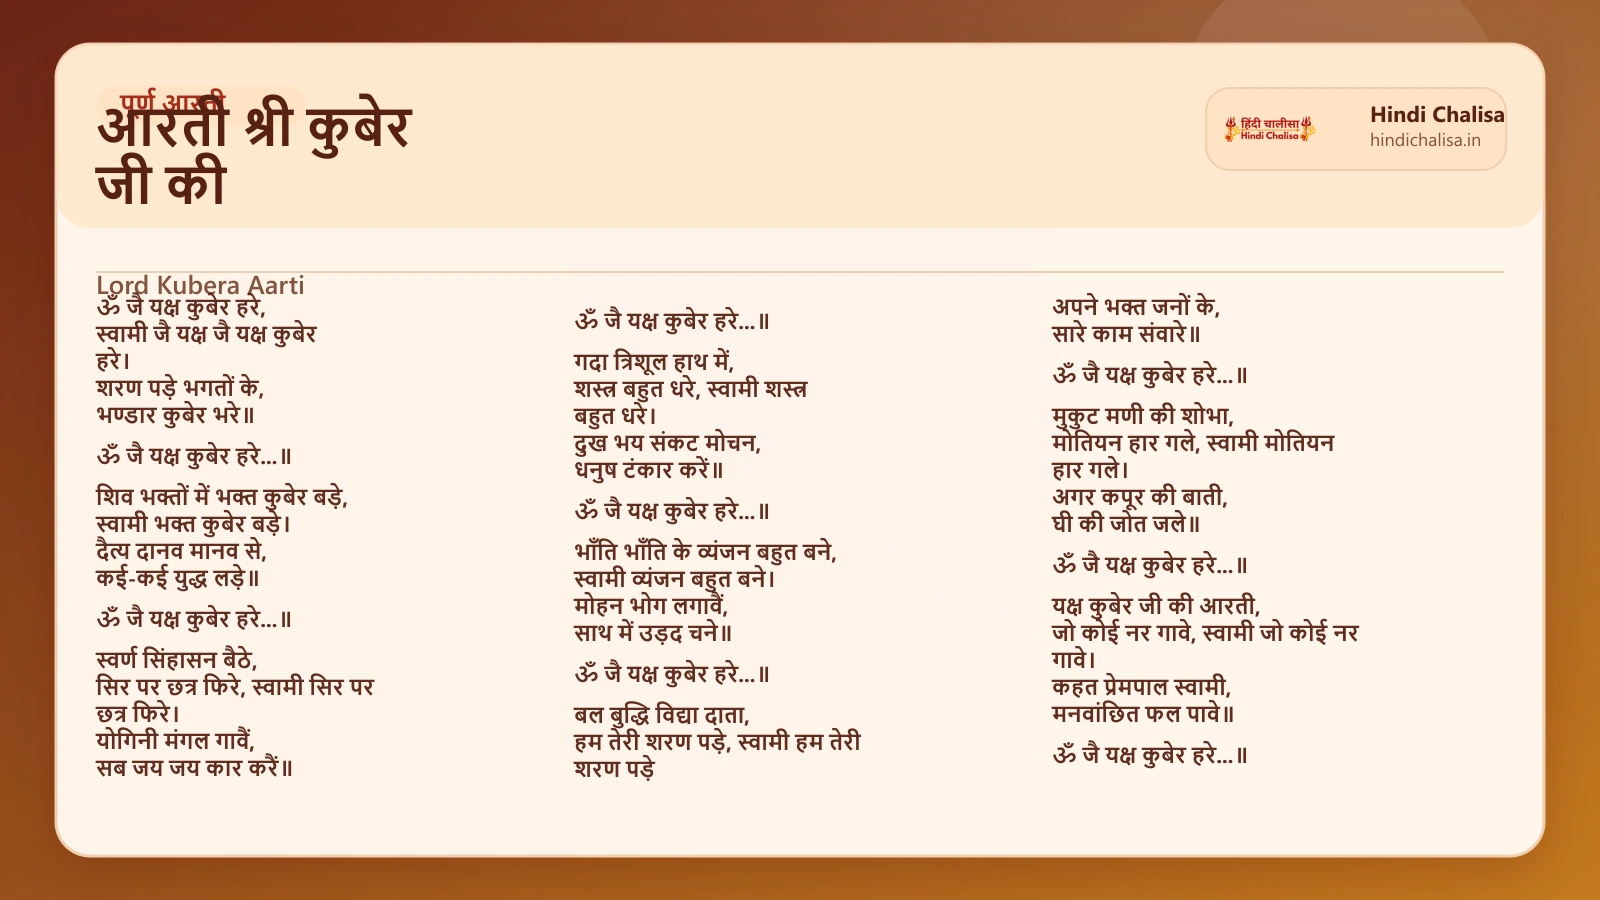 पूर्ण आरती
आरती श्री कुबेर
जी की
हिंदी चालीसा
Hindi Chalisa
Hindi Chalisa
hindichalisa.in
Lord Kubera Aarti
ॐ जै यक्ष कुबेर हरे,
स्वामी जै यक्ष जै यक्ष कुबेर
हरे।
शरण पड़े भगतों के,
भण्डार कुबेर भरे॥
ॐ जै यक्ष कुबेर हरे...॥
शिव भक्तों में भक्त कुबेर बड़े,
स्वामी भक्त कुबेर बड़े।
दैत्य दानव मानव से,
कई-कई युद्ध लड़े॥
ॐ जै यक्ष कुबेर हरे...॥
स्वर्ण सिंहासन बैठे,
सिर पर छत्र फिरे, स्वामी सिर पर
छत्र फिरे।
योगिनी मंगल गावैं,
सब जय जय कार करैं॥
ॐ जै यक्ष कुबेर हरे...॥
गदा त्रिशूल हाथ में,
शस्त्र बहुत धरे, स्वामी शस्त्र
बहुत धरे।
दुख भय संकट मोचन,
धनुष टंकार करें॥
ॐ जै यक्ष कुबेर हरे...॥
भाँति भाँति के व्यंजन बहुत बने,
स्वामी व्यंजन बहुत बने।
मोहन भोग लगावैं,
साथ में उड़द चने॥
ॐ जै यक्ष कुबेर हरे...॥
बल बुद्धि विद्या दाता,
हम तेरी शरण पड़े, स्वामी हम तेरी
शरण पड़े
अपने भक्त जनों के,
सारे काम संवारे॥
ॐ जै यक्ष कुबेर हरे...॥
मुकुट मणी की शोभा,
मोतियन हार गले, स्वामी मोतियन
हार गले।
अगर कपूर की बाती,
घी की जोत जले॥
ॐ जै यक्ष कुबेर हरे...॥
यक्ष कुबेर जी की आरती,
जो कोई नर गावे, स्वामी जो कोई नर
गावे।
कहत प्रेमपाल स्वामी,
मनवांछित फल पावे॥
ॐ जै यक्ष कुबेर हरे...॥